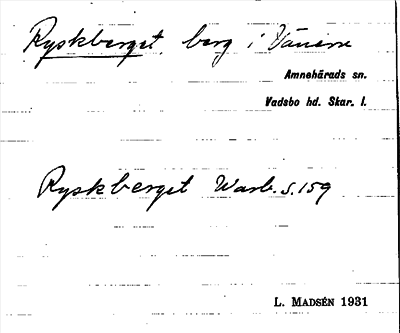 Ryskberget, berg i Vänern
Amnehärads sn.
Vadsbo hd. Skar. l.
Ryskberget Warb. s. 159
L. MADSÉN 1931